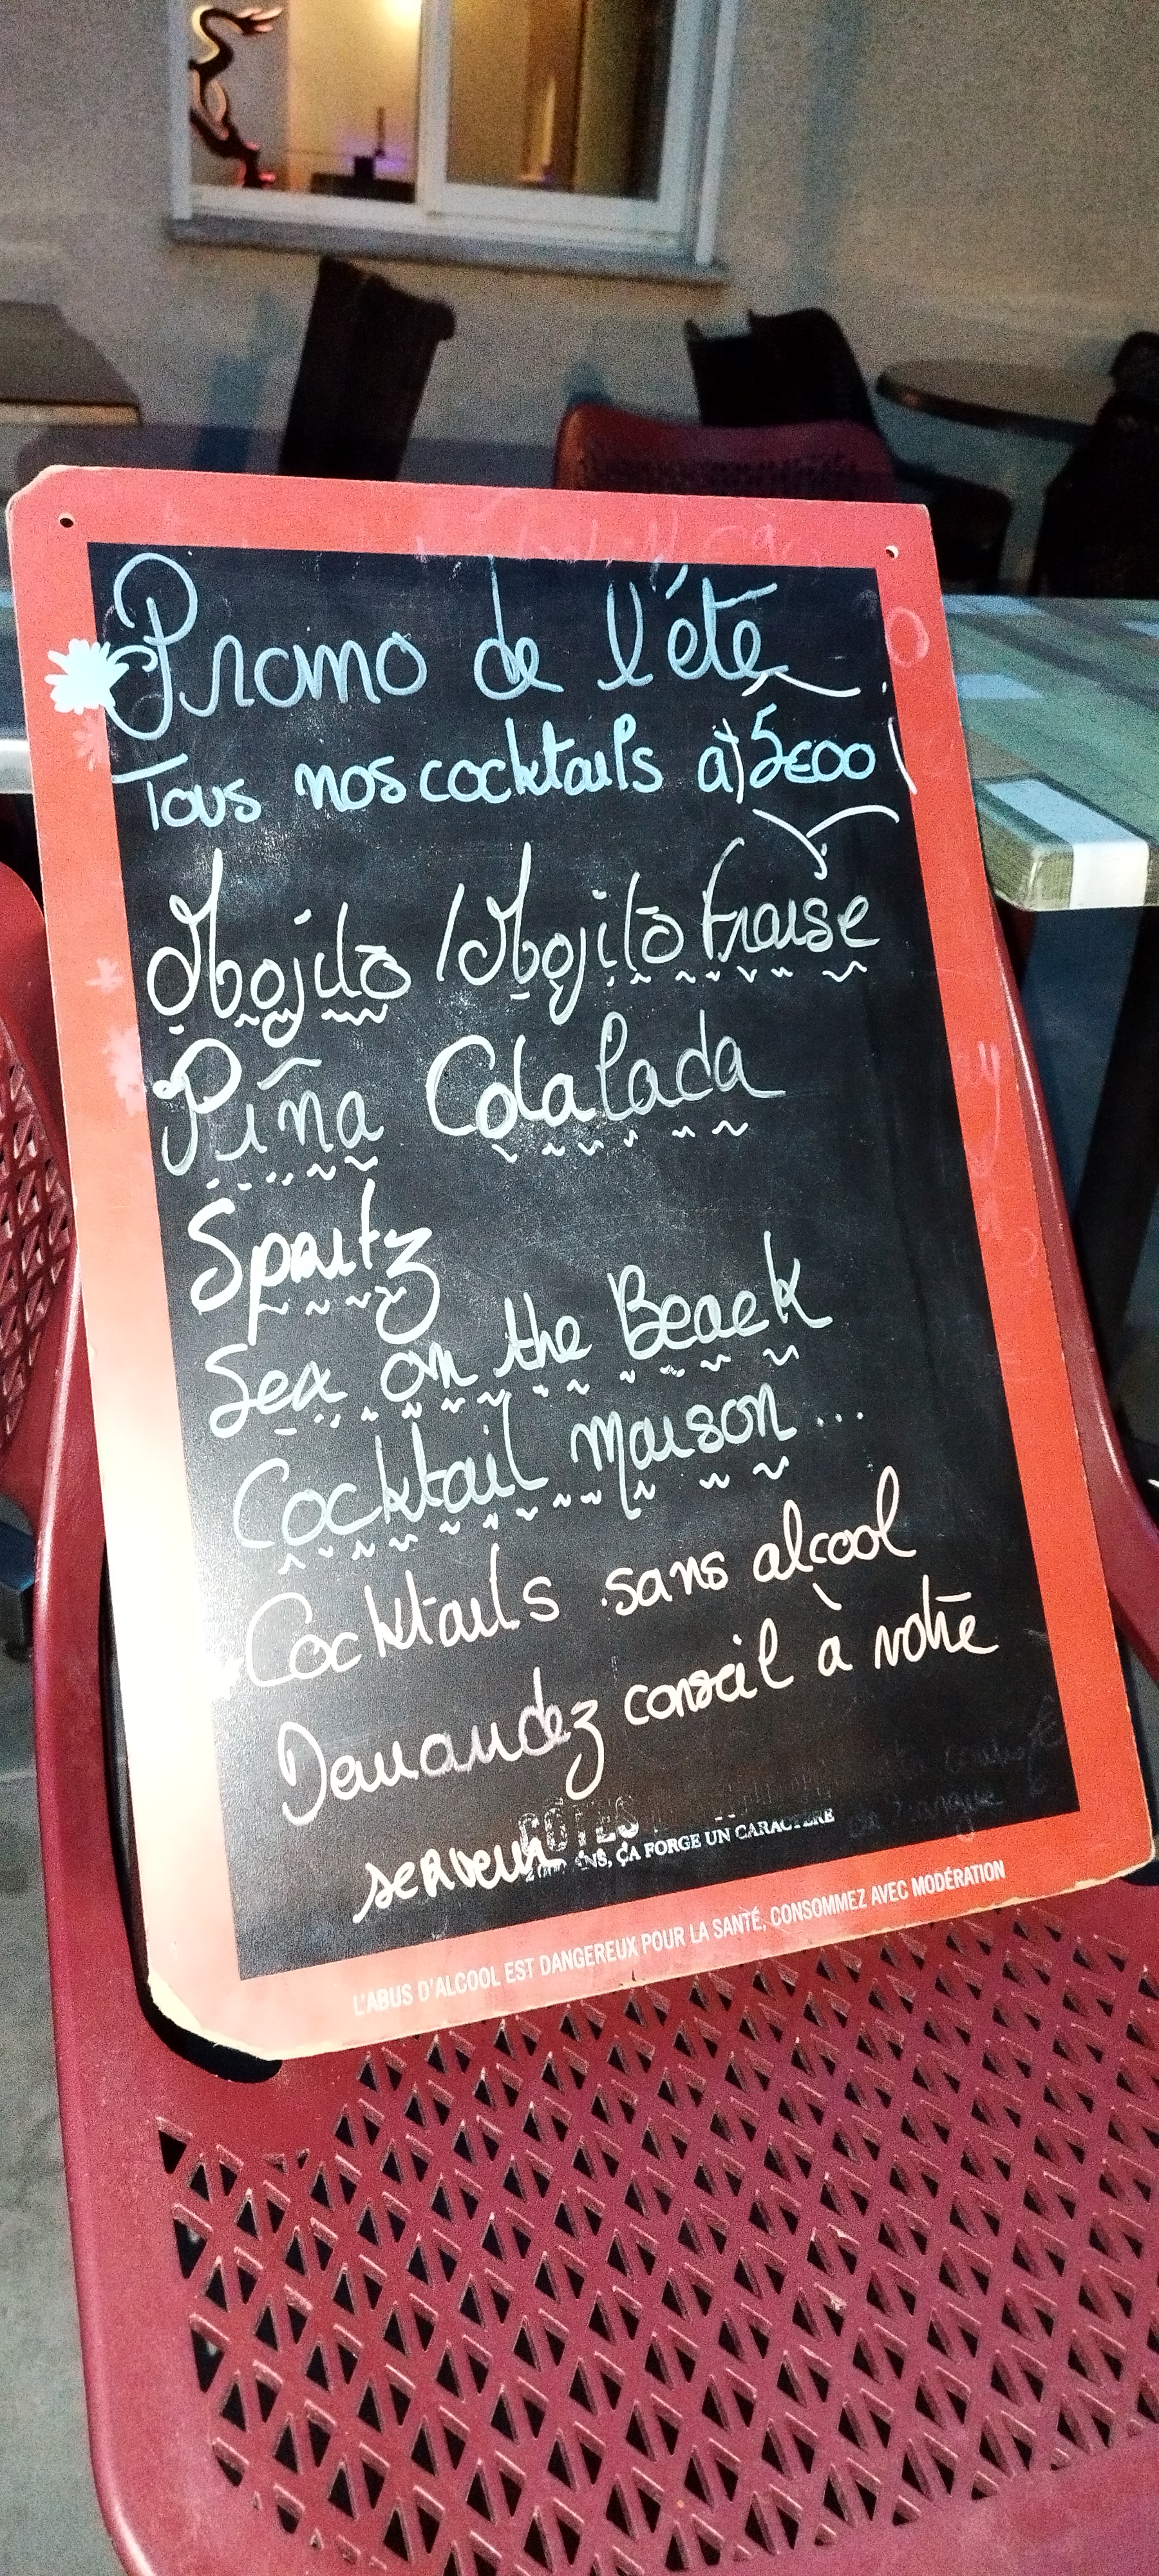 Promo de l'été
Tous nos cocktails à 5€00
Mojito / Mojito Fraise
Piña Colalada
Spritz
Sex on the Beack
Cocktail maison...
Cocktails sans alcool
Demandez conseil à votre
serveur
CÔTES
ANS, ÇA FORGE UN CARACTÈRE
L'ABUS D'ALCOOL EST DANGEREUX POUR LA SANTÉ, CONSOMMEZ AVEC MODÉRATION